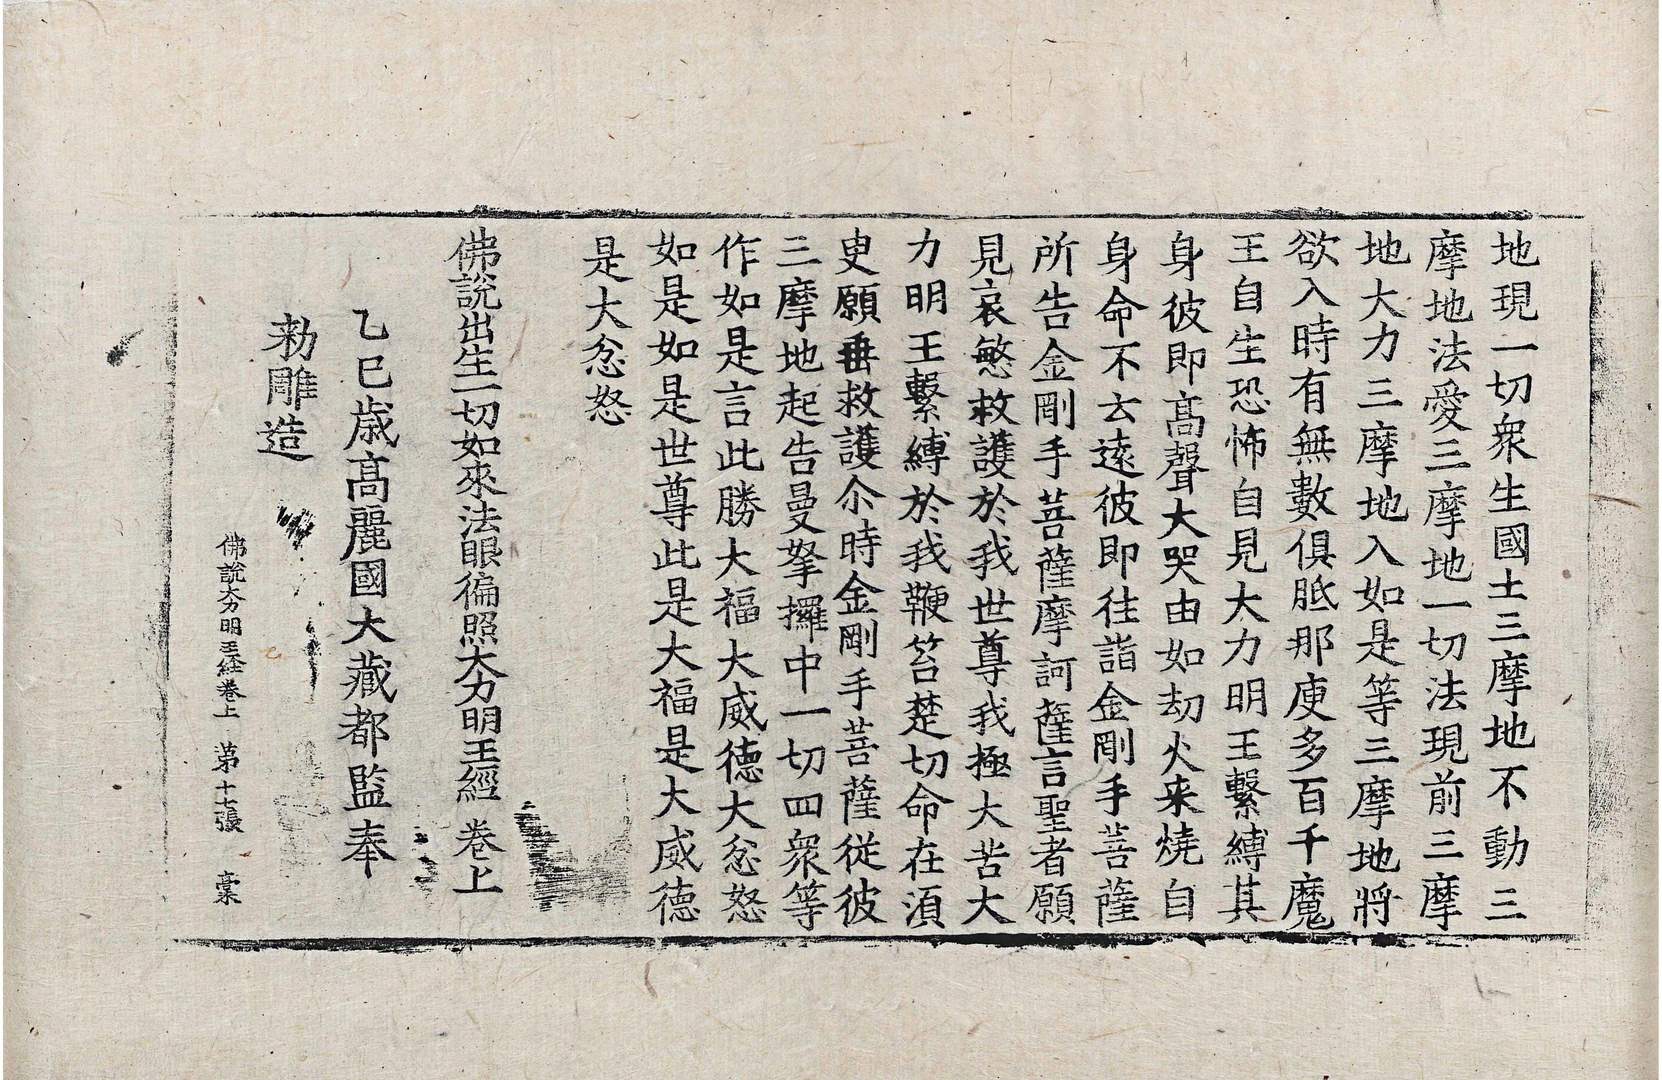 地現一切衆生國土三摩地不動三
摩地法愛三摩地一切法現前三摩
地大力三摩地入如是等三摩地將
欲入時有無數俱胝那庾多百千魔
王自生恐怖自見大力明王繫縛其
身彼即高聲大哭由如劫火来燒自
身命不去遠彼即往詣金剛手菩薩
所告金剛手菩薩摩訶薩言聖者願
見哀愍救護於我世尊我極大苦大
力明王繫縛於我鞭笞楚切命在須
㬰願垂救護尒時金剛手菩薩從彼
三摩地起告曼拏攞中一切四衆等
作如是言此勝大福大威德大忿怒
如是如是世尊此是大福是大威德
是大忿怒
佛說出生一切如來法眼徧照大力明王經卷上
乙巳歲高麗國大藏都監奉
勑雕造
佛說大力明王経卷上 第十七張 槖